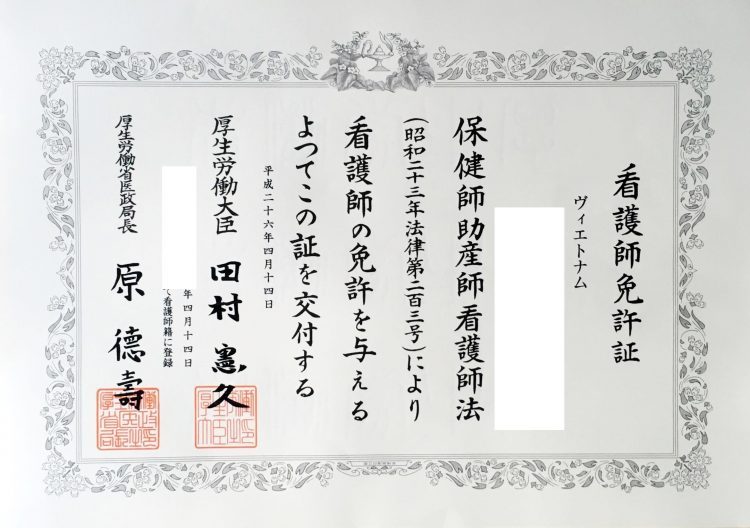 看護師免許証
ヴィエトナム
保健師助産師看護師法
(昭和二十三年法律第二百三号)により
看護師の免許を与える
よつてこの証を交付する
平成二十六年四月十四日
厚生労働大臣 田村憲久
年四月十四日
て看護師籍に登録
厚生労働省医政局長 原 德壽